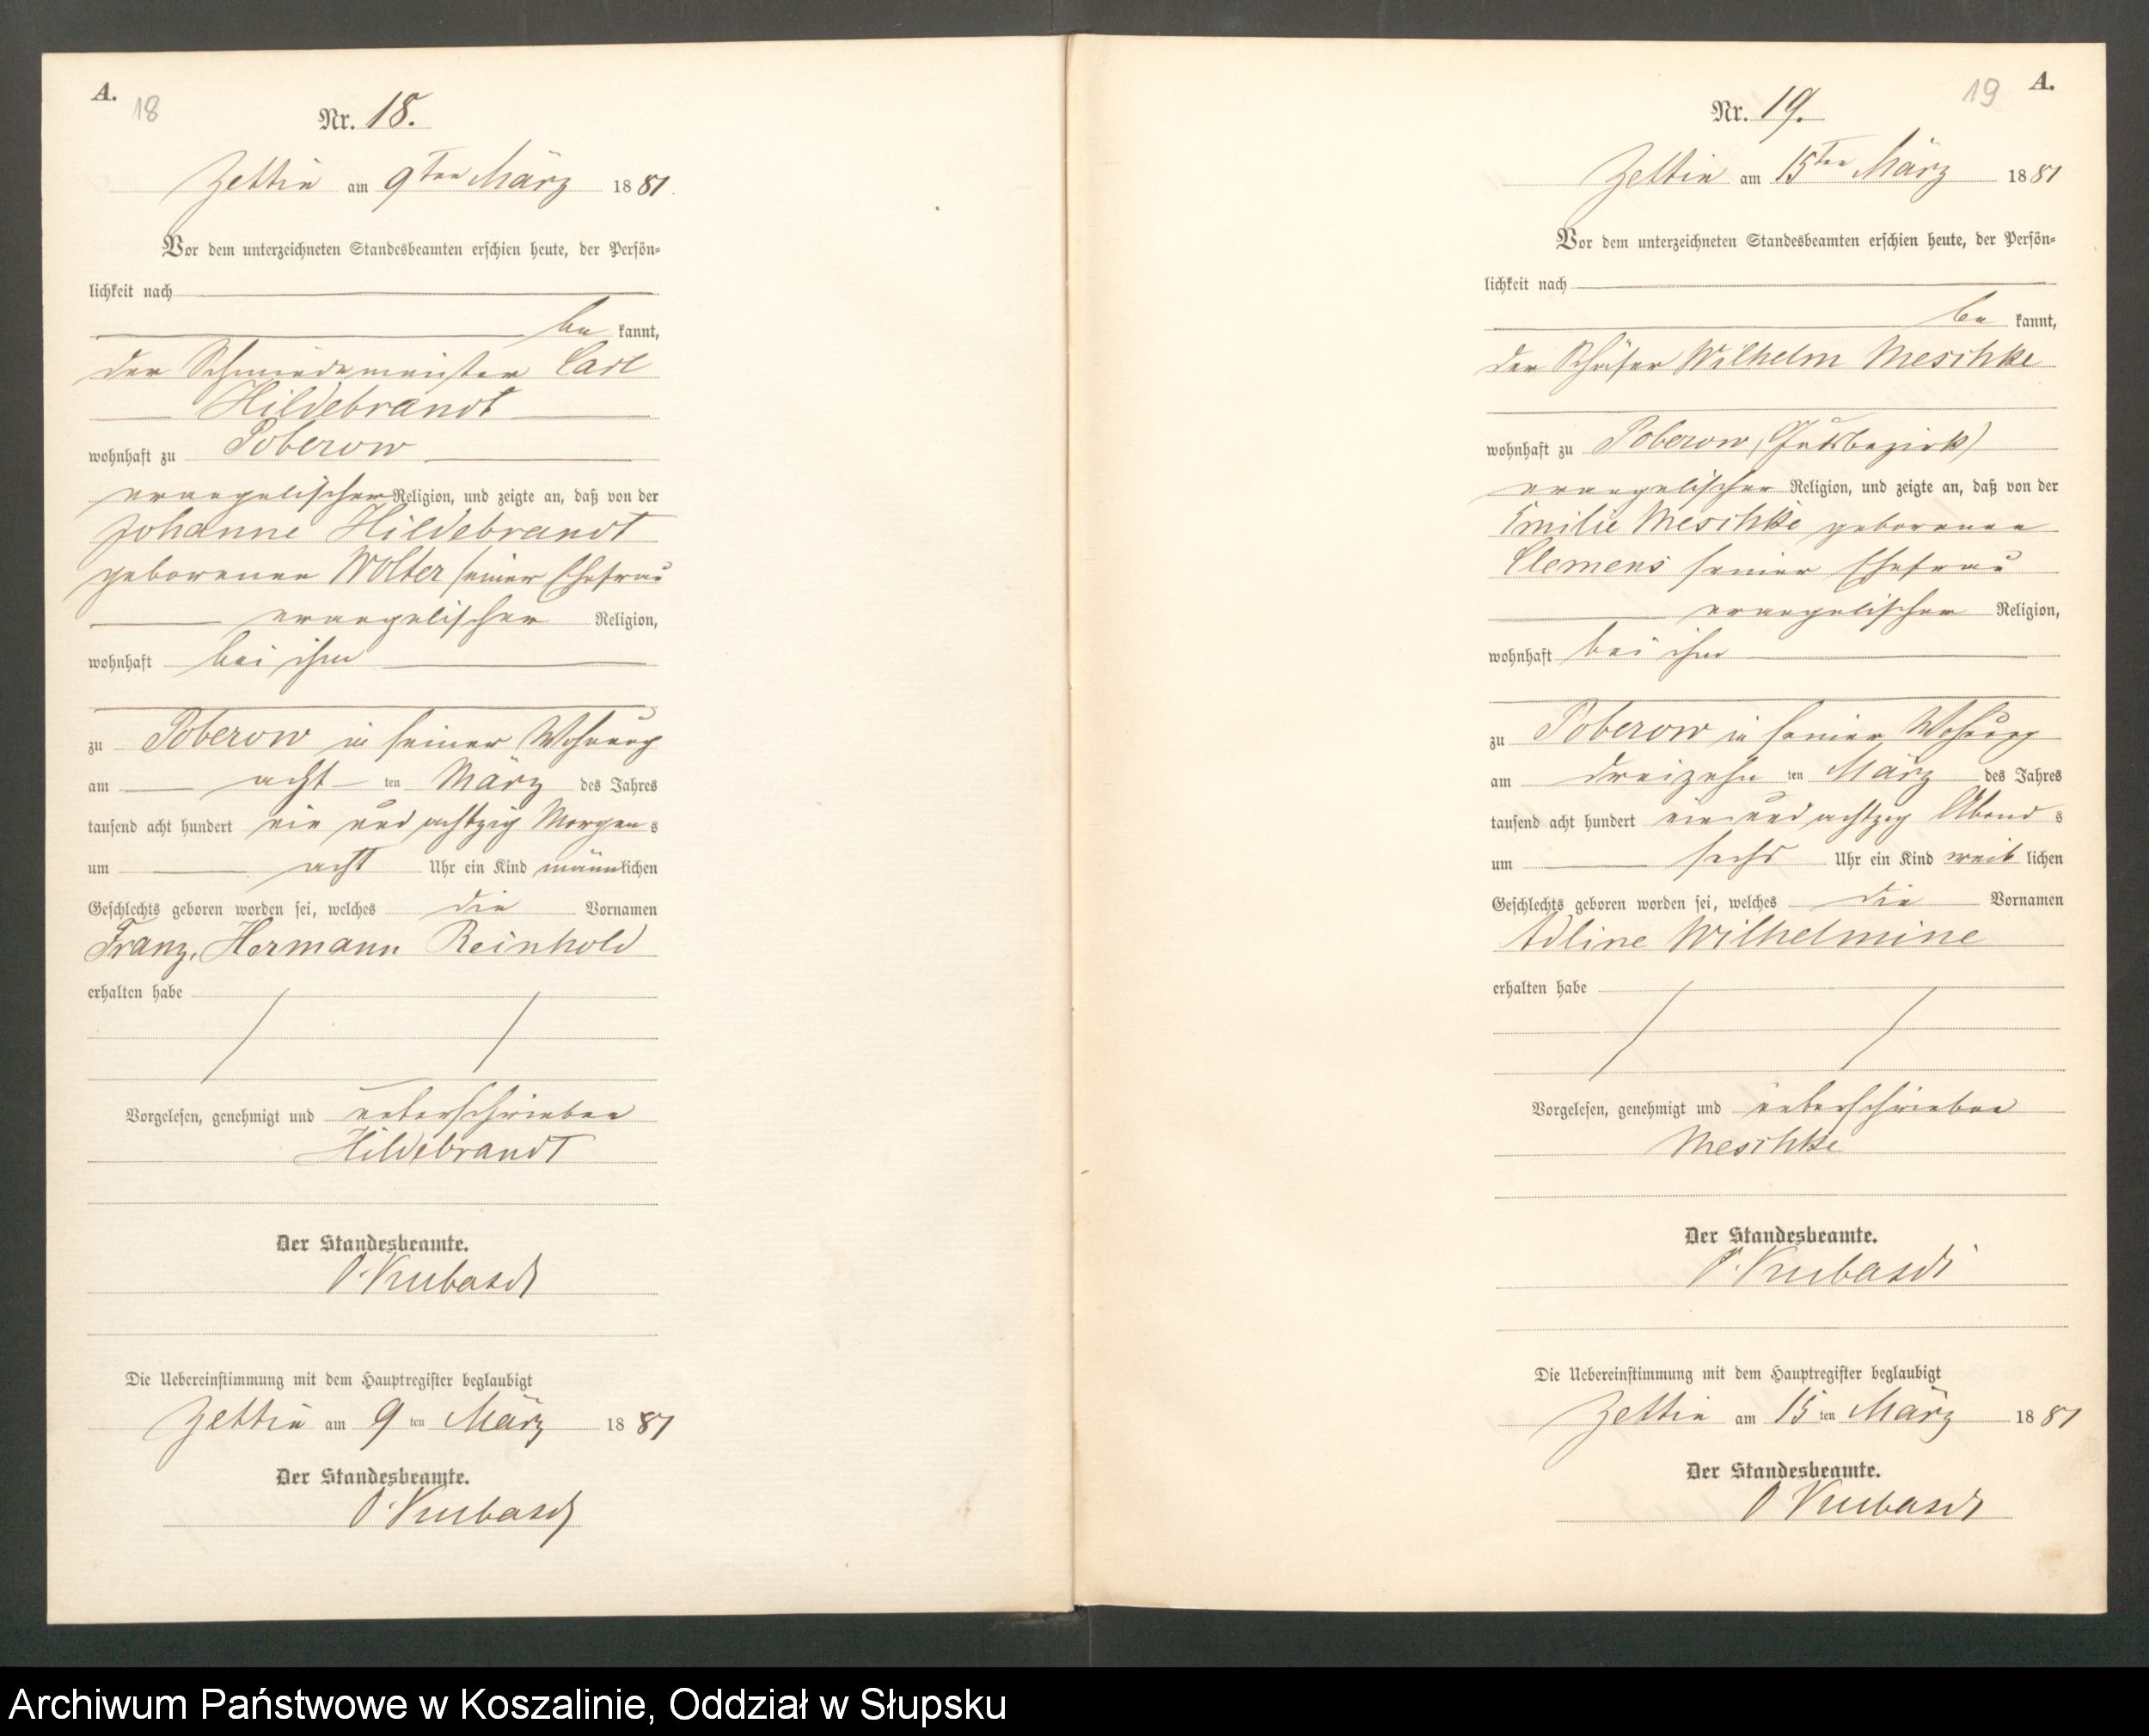 A.
18
Nr. 18.
Zettin am 9ten März 1881.
Vor dem unterzeichneten Standesbeamten erschien heute, der Persön-
lichkeit nach
be kannt,
der Schmiedemeister Carl
Hildebrandt
wohnhaft zu Poberow
evangelischer Religion, und zeigte an, daß von der
Johanne Hildebrandt
geborenen Wolter seiner Ehefrau
evangelischer Religion,
wohnhaft bei ihm
zu Poberow in seiner Wohnung
am acht ten März des Jahres
tausend acht hundert ein und achtzig Morgens
um acht Uhr ein Kind männlichen
Geschlechts geboren worden sei, welches die Vornamen
Franz, Hermann Reinhold
erhalten habe
Vorgelesen, genehmigt und unterschrieben
Hildebrandt
Der Standesbeamte.
Die Uebereinstimmung mit dem Hauptregister beglaubigt
Zettin am 9 ten März 1881
Der Standesbeamte.
19
A.
Nr. 19.
Zettin am 15ten März 1881
Vor dem unterzeichneten Standesbeamten erschien heute, der Persön-
lichkeit nach
be kannt,
der Schäfer Wilhelm Meschke
wohnhaft zu Poberow (Gutsbezirk)
evangelischer Religion, und zeigte an, daß von der
Emilie Meschke geborenen
Clemens seiner Ehefrau
evangelischer Religion,
wohnhaft bei ihm
zu Poberow in seiner Wohnung
am dreizehn ten März des Jahres
tausend acht hundert ein und achtzig Abends
um sechs Uhr ein Kind weiblichen
Geschlechts geboren worden sei, welches die Vornamen
Adline Wilhelmine
erhalten habe
Vorgelesen, genehmigt und unterschrieben
Meschke
Der Standesbeamte.
Die Uebereinstimmung mit dem Hauptregister beglaubigt
Zettin am 15 ten März 1881
Der Standesbeamte.
Archiwum Państwowe w Koszalinie, Oddział w Słupsku